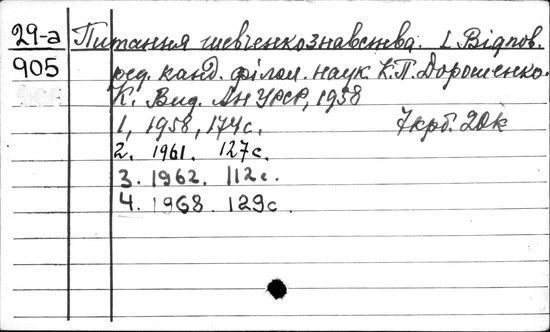 29-а Питання шевченкознавства. 1. Відпов.
905 ред. канд. філол. наук К.П. Дорошенко.
К. Вид. АН УРСР, 1958
1, 1958, 174с. 7крб. 20к
2. 1961. 127с.
3. 1962. 112с.
4. 1968. 129с.